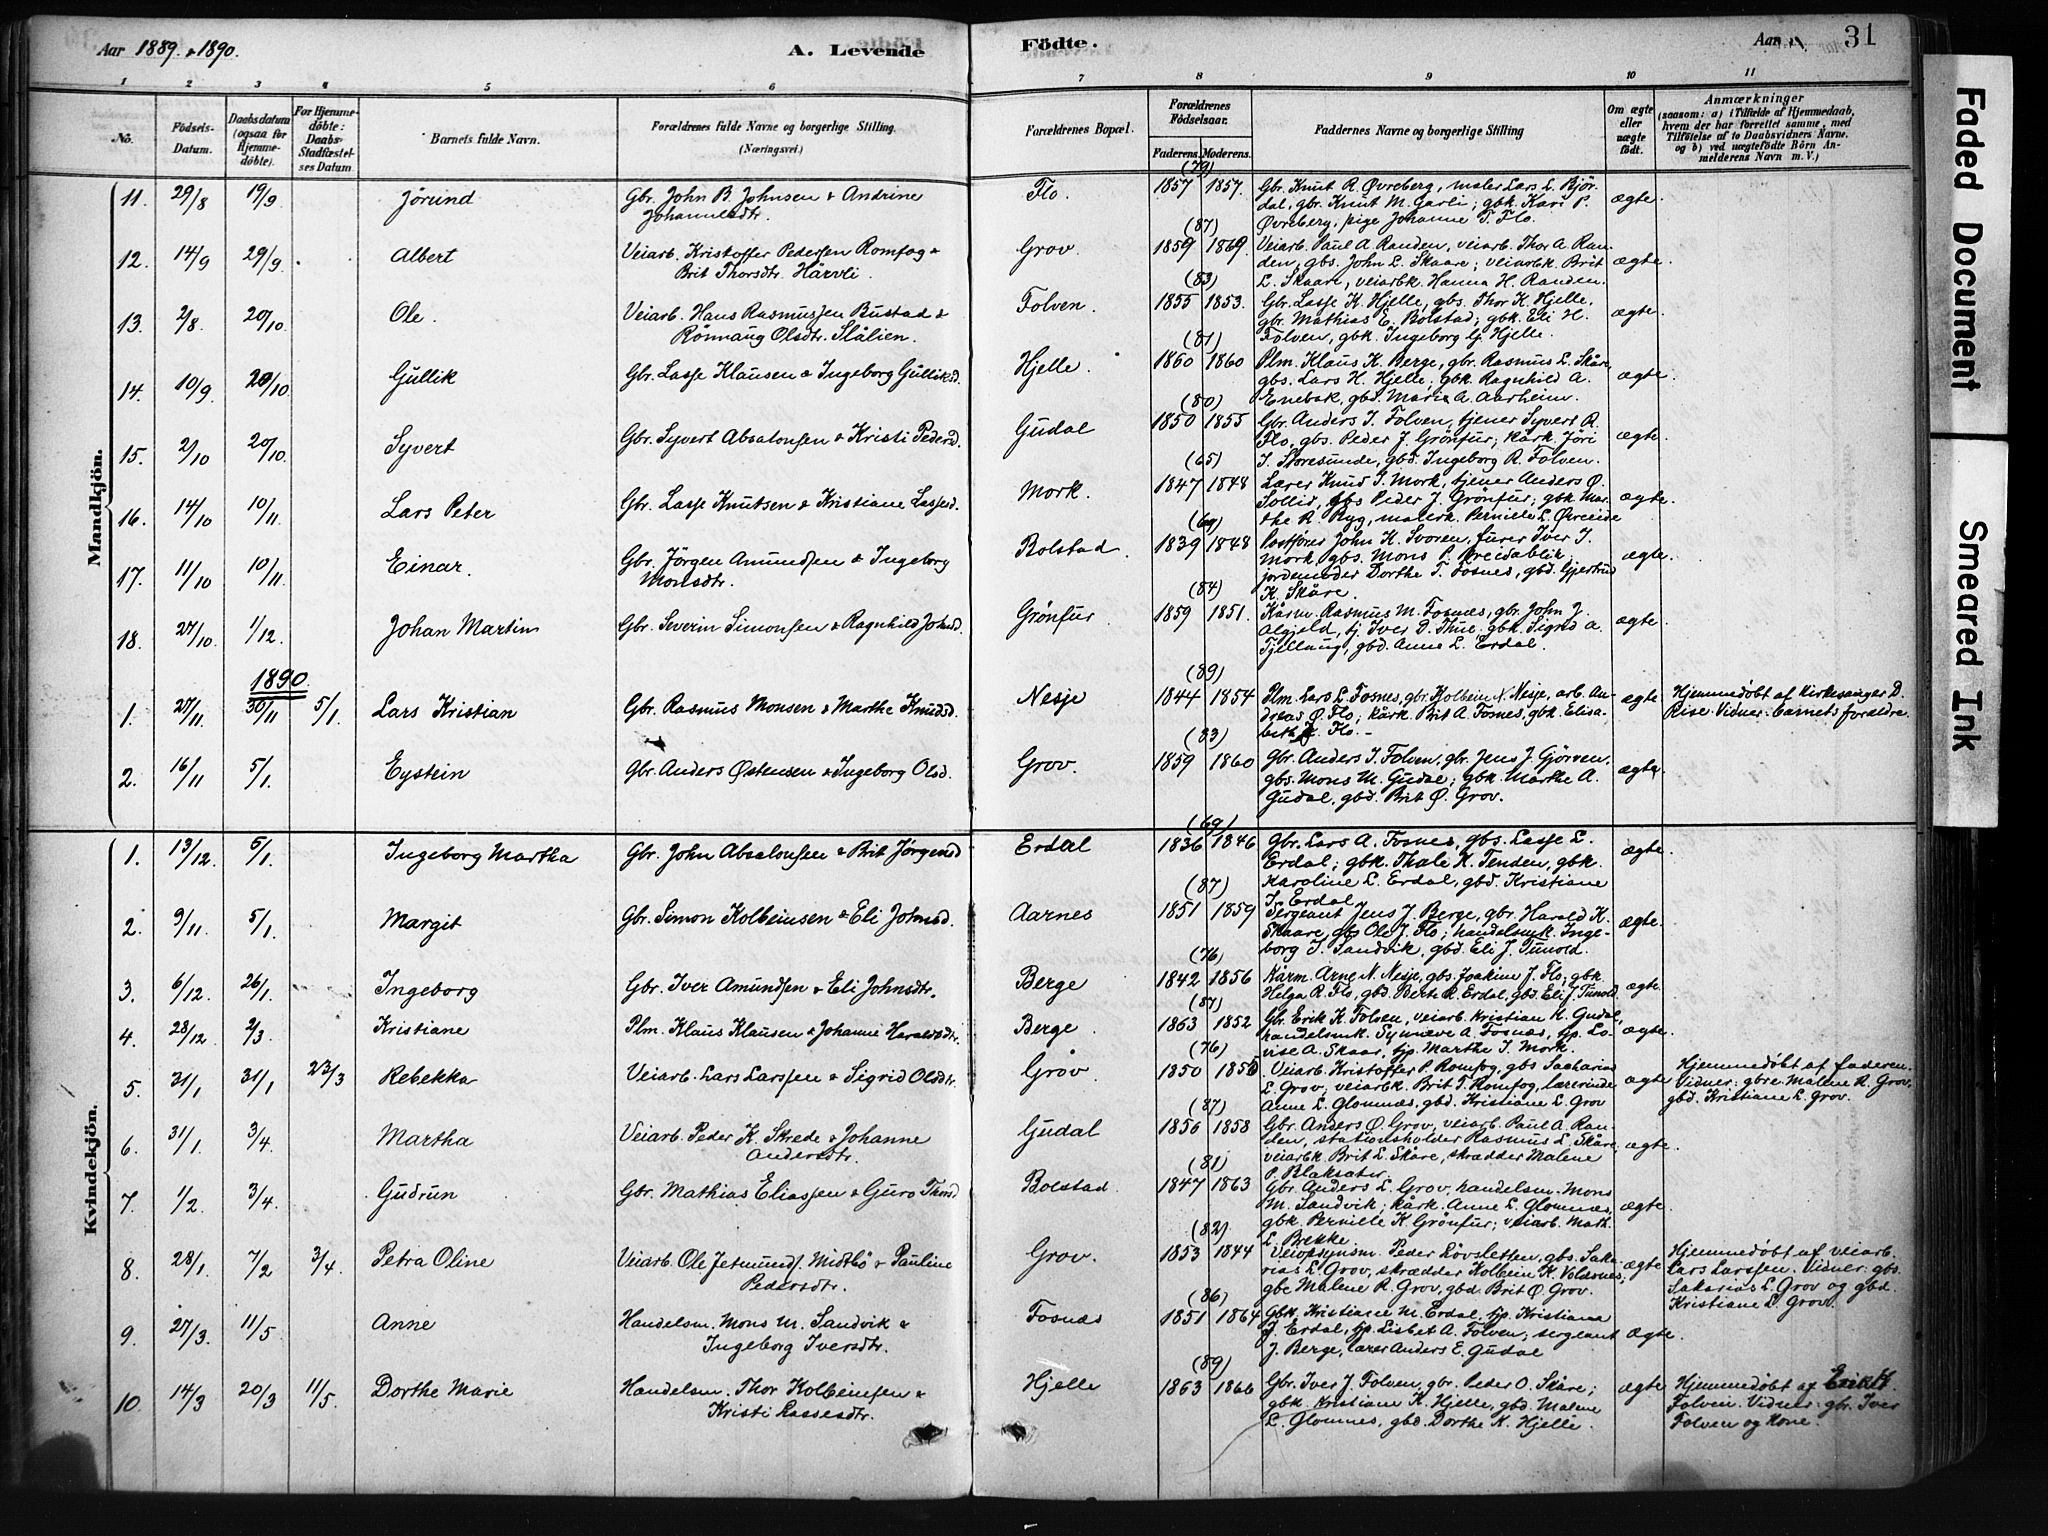 Aar 1889 & 1890.
A. Levende
Födte.
Aar
31
1
2
3
4
5
6
7
8
9
10
11
No.
Födsels-
Datum.
Daabsdatum
(ogsaa for
Hjemme-
döbte).
For Hjemme-
döbte:
Daabs-
Stadfæstel-
ses Datum
Barnets fulde Navn.
Forældrenes fulde Navne og borgerlige Stilling.
(Næringsvei.)
Forældrenes Bopæl.
Forældrenes
Födselsaar.
Faderens.
Moderens.
Faddernes Navne og borgerlig Stilling
Om ægte
eller
uægte
født.
Anmærkninger
(saasom: a) i Tilfælde af Hjemmedaab,
hvem der har forrettet samme, med
Tilföielse af to Daabsvidners Navne.
og b) ved uægtefödte Börn An-
melderens Navn m. V.)
Mandkjön.
11. 29/8 19/9 Jörund Gbr. John B. Johnsen & Andrine
Johannesdtr. Flo. (79) 1857 1857. ægte.
Gbr. Knut R. Øvreberg, maler Lars L. Björ-
dal, gbr. Knut M. Garli; gbk. Kari P.
Øvreberg, pige Johanne T. Flo.
12. 14/9 29/9 Albert Veiarb. Kristoffer Pedersen Romfog &
Brit Thorsdtr. Hårvli. Grov (87) 1859 1869. ægte.
Veiarb. Paul A. Randen, veiarb. Thor A. Ran-
den, gbs. John L. Skaare; veiarbk. Brit
L. Skaare, veiarbk. Hanna H. Randen.
13. 2/8 20/10 Ole. Veiarb. Hans Rasmussen Bustad &
Rönnaug Olsdtr. Slålien. Folven (83) 1855 1853. ægte.
Gbr. Lasse K. Hjelle, gbs. Thor K. Hjelle,
gbr. Mathias E. Bolstad; gbk. Eli H.
Folven, gbk. Ingeborg Hjelle.
14. 10/9 20/10 Gullik Gbr. Lasse Klausen & Ingeborg Gulliksd. Hjelle. (81) 1860 1860 ægte.
Plm. Klaus K. Berge, gbr. Rasmus L. Skåre,
gbs. Lars H. Hjelle; gbk. Ragnhild A.
Enebak, gbd. Marie A. Aarheim.
15. 2/10 20/10. Syvert Gbr. Syvert Absalonsen & Kristi Pedersd. Gudal (80) 1850 1855 ægte.
Gbr. Anders I. Folven, tjener Syvert R.
Flo, gbs. Peder J. Grönfur; kårk. Jöri
I. Storesunde, gbd. Ingeborg R. Folven.
16. 14/10 10/11. Lars Peter Gbr. Lasse Knutsen & Kristiane Lassesd. Mork. (65) 1847 1848 ægte.
Lærer Knud I. Mork, tjener Anders O.
Sollid, gbs Peder J. Grönfur; gbk Mar-
the R. Ryg, malerk. Pernille L. Øvreeide
17. 11/10 10/11. Einar. Gbr. Jörgen Amundsen & Ingeborg
Monsdtr. Bolstad. (69) 1839 1848 ægte.
Postförer John K. Svoren, furer Iver I.
Mork, gbs. Mons P. Breidablik;
jordemoder Dorthe T. Fosnes, gbd. Gjertrud
K. Skåre.
18. 27/10 1/12. Johan Martin Gbr. Severin Simonsen & Ragnhild Johnsd. Grönfur (84) 1859 1851. ægte.
Kårm. Rasmus M. Fosnæs, gbr. John J.
Algjeld, tj Iver D. Thue. gbk. Sigrid A.
Tjellaug, gbd. Anne L. Erdal.
1890.
1. 27/11. 30/11 5/1 Lars Kristian Gbr. Rasmus Monsen & Marthe Knudsd. Nesje (89) 1844 1854 ægte
Plm. Lars L. Fosnes, gbr Kolbein N. Nesje, arb. An-
dreas O. Flo; kårk. Brit A. Fosnes, gbk. Elisa-
beth Flo.
Hjemmedöbt af Kirkesanger D.
Rise. Vidner: barnets foraldre.
2. 16/11 5/1. Eystein Gbr. Anders Østensen & Ingeborg Olsd. Grov. (83) 1859 1860 ægte
Gbr. Anders I. Folven, gbr. Jens J. Gjörven,
gbs. Mons M. Gudal; gbk. Marthe A.
Gudal, gbd. Brit Ø. Grov.
Kvindekjön.
1. 13/12. 5/1. Ingeborg Martha Gbr. John Absalonsen & Brit Jörgensd Erdal (69) 1836 1846 ægte.
Gbr. Lars A. Fosnes, gbs. Lasse L.
Erdal; gbk. Thale K. Tenden, gbk.
Karoline L. Erdal, gbd. Kristiane
I. Erdal
2. 9/11. 5/1. Margit Gbr. Simon Kolbeinsen & Eli Johnsd. Aarnes (87) 1851 1859 ægte.
Sergeant Jens J. Berge, gbr. Harald K.
Skaare, gbs Ole J. Flo; handelsmk. Inge-
borg I. Sandvik, gbd. Eli J. Tunold.
3. 6/12. 26/1. Ingeborg Gbr. Iver Amundsen & Eli Johnsdtr. Berge (76) 1842 1856 ægte
Kårm. Arne N. Nesje, gbs. Joakim J. Flo; gbk
Helga R. Flo, gbd Berte R. Erdal, gbd. Eli J. Tunold.
4. 28/12 2/3. Kristiane Plm. Klaus Klausen & Johanne Haraldsdtr. Berge. (87) 1863 1852 ægte.
Gbr. Erik K. Folven, veiarb. Kristian K. Gudal,
handelsmk. Synneve A. Fosnæs, tp. Lo-
vise A. Skaar, tp. Marthe I. Mork.
5. 31/1 31/1 23/3 Rebekka Veiarb. Lars Larssen & Sigrid Olsdtr. Grov (76) 1850 1855 ægte
Veiarb. Kristoffer P. Romfog, gbs Sacharias
L. Grov; veiarbk. Brit T. Romfog, lærerinde
Anne L. Glomnæs, gbd. Kristiane L. Grov
Hjemmedöbt af faderen.
Vidner: gbre. Malene R. Grov,
gbd. Kristiane L. Grov.
6. 31/1 3/4. Martha Veiarb. Peder K. Skrede & Johanne
Andersdtr. Gudal (87) 1856 1858 ægte.
Gbr. Anders Ø. Grov, veiarb. Paul A. Ran-
den, stationsholder Rasmus L. Skåre,
veiarbk. Brit L. Skåre, skrædder Malene
P. Blaksæter.
7. 1/2 3/4. Gudrun Gbr. Mathias Eliassen & Guro Thorsd Bolstad. (81) 1847 1863 ægte.
Gbr. Anders L. Grov, handelsm. Mons
M. Sandvik; kårk. Anne L. Glomnæs,
gbk. Pernille K. Grönfur; veiarb. Math.
L. Brekke.
8. 28/1. 7/2 3/4. Petra Oline Veiarb. Ole Jetmunds. Midtbö & Pauline
Pedersdtr. Grov. (82) 1853 1844 ægte
Veiopsynsm. Peder Lövsletten, gbs. Saka-
rias L. Grov, skrædder Kolbein K. Voldsnes;
gbe Malene R. Grov, gbd. Brit Ø. Grov.
Hjemmedöbt af veiarb.
Lars Larssen. Vidner: gbs.
Sakarias L. Grov og gbd.
Kristiane L. Grov.
9. 27/3. 11/5. Anne Handelsm. Mons M. Sandvik &
Ingeborg Iversdtr. Fosnæs (86) 1851 1864 ægte.
Gbk. Kristiane M. Erdal, tp. Kristiane
J. Erdal, tp. Lisbet A. Folven; sergeant
J. Berge, lærer Anders E. Gudal
10. 14/3 20/3 11/5. Dorthe Marie Handelsm. Thor Kolbeinsen &
Kristi Lassesdtr. Hjelle (89) 1863 1866 ægte
Gbr. Iver J. Folven, gbr. Peder O. Skåre;
gbk. Kristiane K. Hjelle, gbd. Malene
L. Glomnes, gbd. Dorthe K. Hjelle.
Hjemmedöbt af Erik K.
Folven. Vidner: gbr. Iver
Folven og Kone.
Faded Document
Smeared Ink